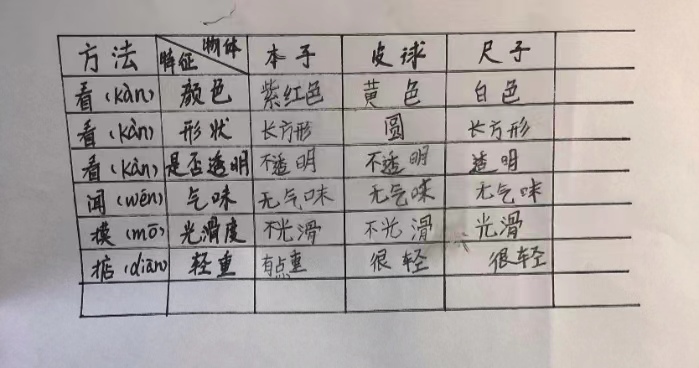 方法 特征 物体 本子 皮球 尺子
看(kàn) 颜色 紫红色 黄色 白色
看(kàn) 形状 长方形 圆 长方形
看(kàn) 是否透明 不透明 不透明 透明
闻(wén) 气味 无气味 无气味 无气味
摸(mō) 光滑度 不光滑 不光滑 光滑
掂(diān) 轻重 有点重 很轻 很轻